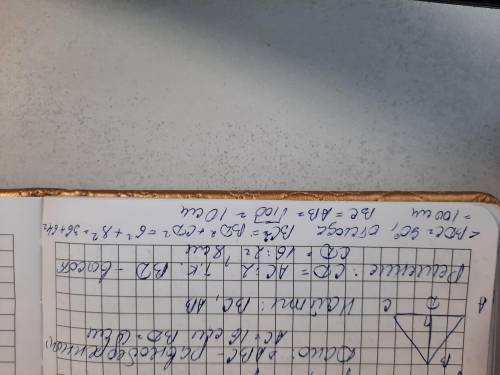 Дано: △ABC - равнобедренный
AC = 16 см BD = 6 см
Найти: BC, AB
B
A D C
Решение: CD = AC:2, т.к. BD - высота
CD = 16:2 = 8 см
∠BDC = 90°, отсюда BC² = BD² + CD² = 6² + 8² = 36 + 64 =
= 100 см BC = AB = √100 = 10 см